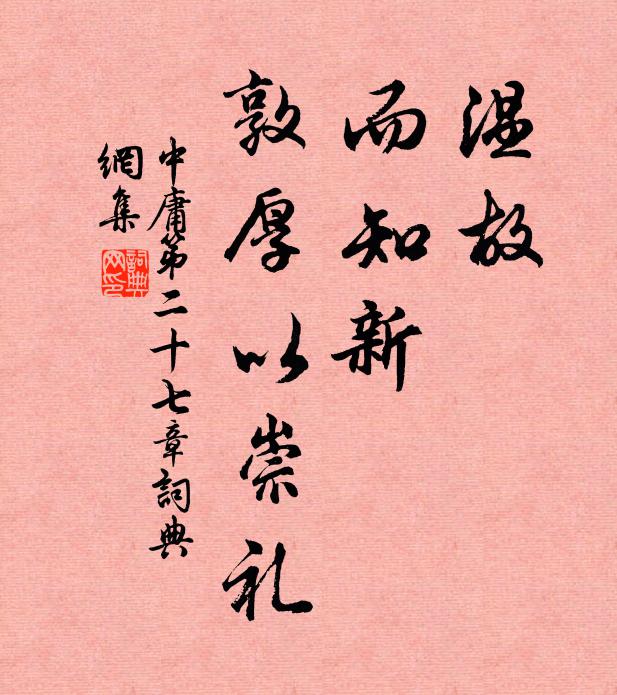 温故
而知新
敦厚以崇礼
中庸第二十七章詞典
網集
詞典
网印